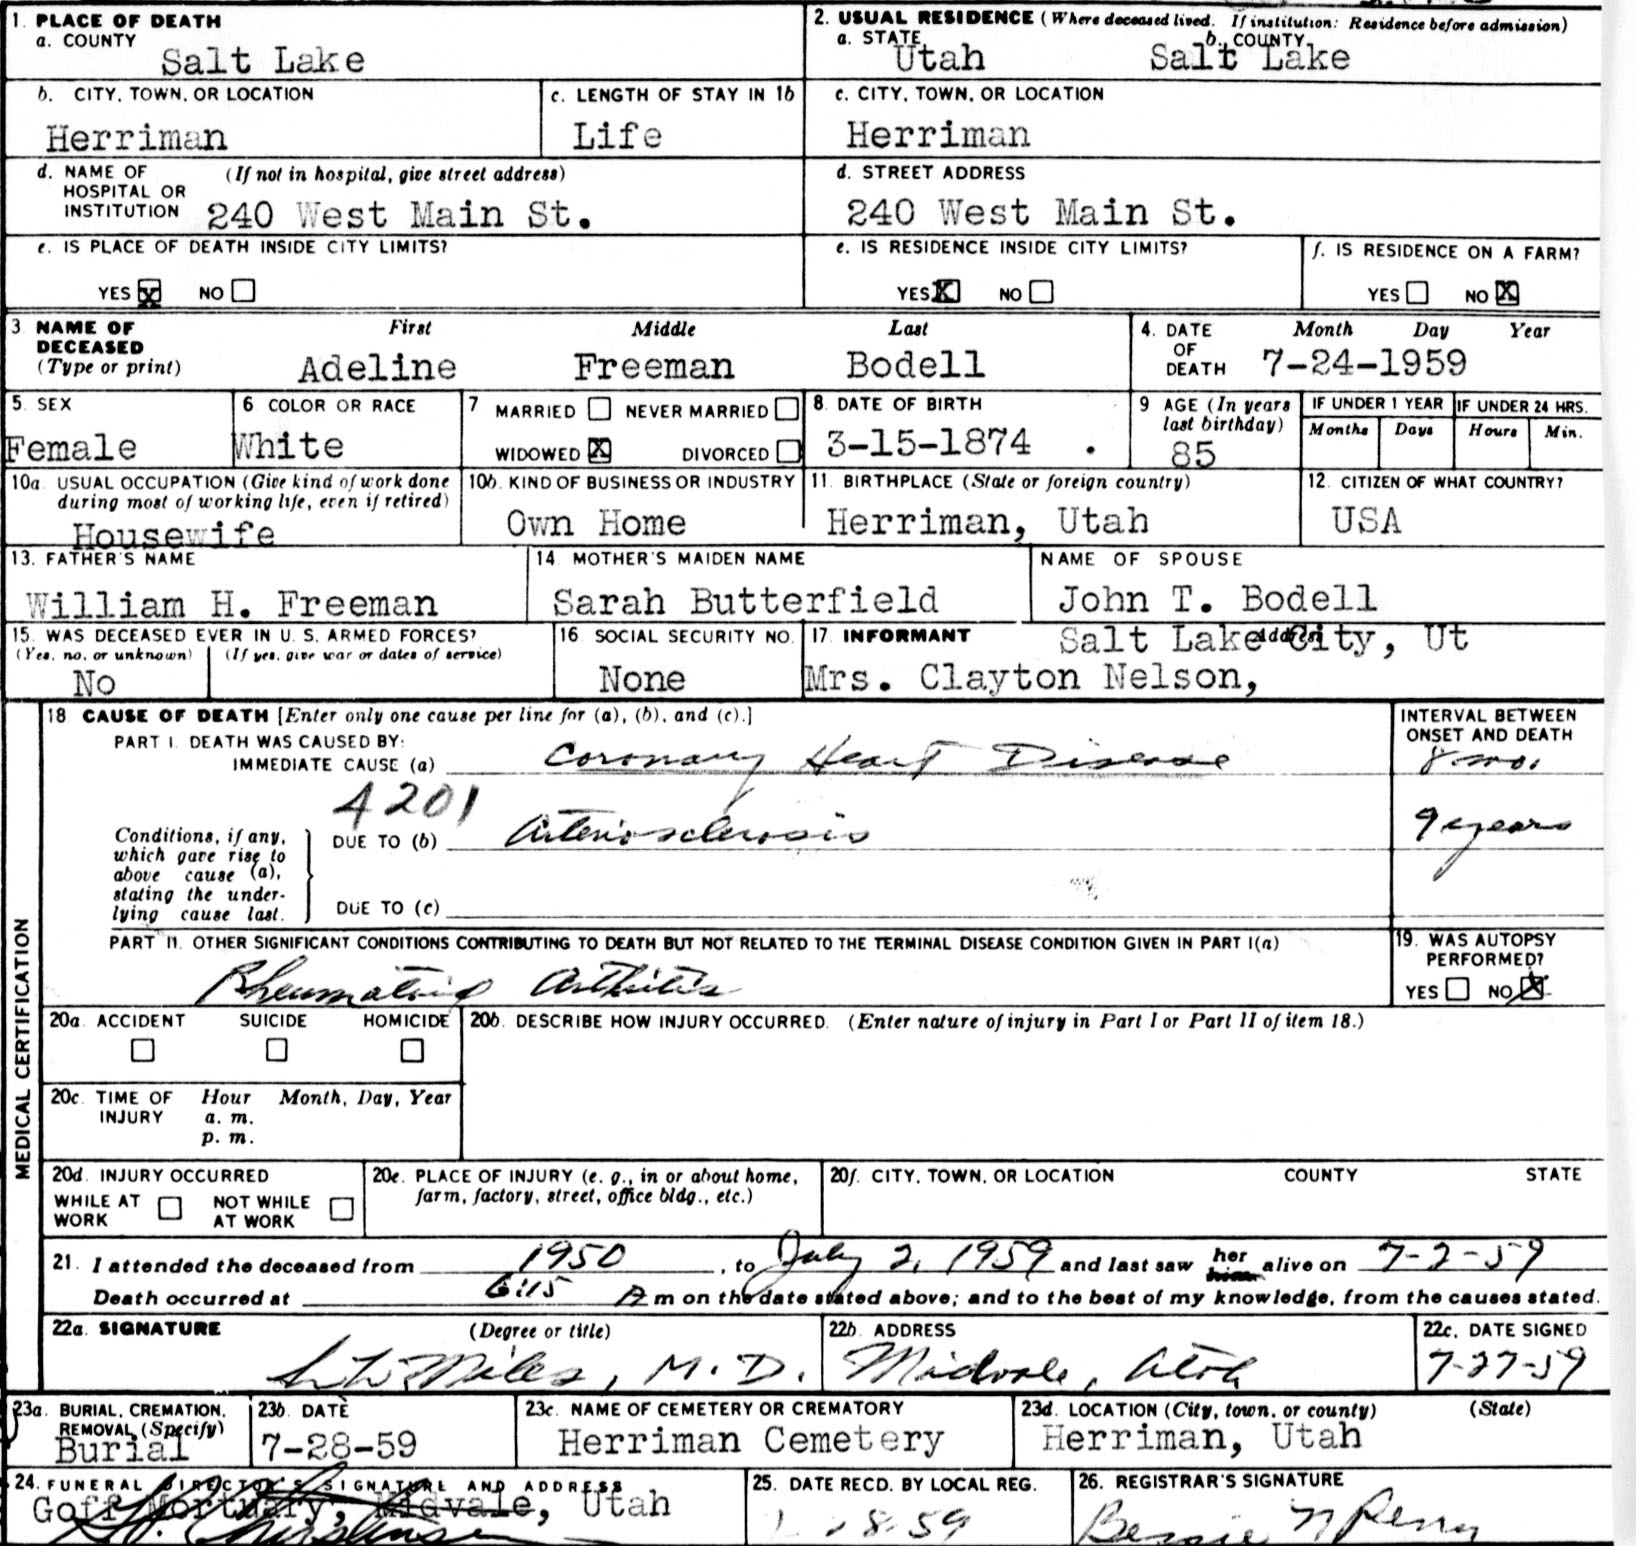 1. PLACE OF DEATH
a. COUNTY
Salt Lake
2. USUAL RESIDENCE (Where deceased lived. If institution: Residence before admission)
a. STATE b. COUNTY
Utah Salt Lake
b. CITY, TOWN, OR LOCATION
Herriman
c. LENGTH OF STAY IN 1b
Life
c. CITY, TOWN, OR LOCATION
Herriman
d. NAME OF (If not in hospital, give street address)
HOSPITAL OR
INSTITUTION 240 West Main St.
d. STREET ADDRESS
240 West Main St.
e. IS PLACE OF DEATH INSIDE CITY LIMITS?
YES X NO
e. IS RESIDENCE INSIDE CITY LIMITS?
YES X NO
f. IS RESIDENCE ON A FARM?
YES NO X
3 NAME OF First Middle Last
DECEASED
(Type or print) Adeline Freeman Bodell
4. DATE Month Day Year
OF
DEATH 7-24-1959
5. SEX
Female
6 COLOR OR RACE
White
7 MARRIED NEVER MARRIED
WIDOWED X DIVORCED
8. DATE OF BIRTH
3-15-1874 .
9 AGE (In years
last birthday)
85
IF UNDER 1 YEAR IF UNDER 24 HRS.
Months Days Hours Min.
10a. USUAL OCCUPATION (Give kind of work done
during most of working life, even if retired)
Housewife
10b. KIND OF BUSINESS OR INDUSTRY
Own Home
11. BIRTHPLACE (State or foreign country)
Herriman, Utah
12. CITIZEN OF WHAT COUNTRY?
USA
13. FATHER'S NAME
William H. Freeman
14 MOTHER'S MAIDEN NAME
Sarah Butterfield
NAME OF SPOUSE
John T. Bodell
15. WAS DECEASED EVER IN U. S. ARMED FORCES?
(Yes, no, or unknown) (If yes, give war or dates of service)
No
16 SOCIAL SECURITY NO.
None
17. INFORMANT Address
Salt Lake City, Ut
Mrs. Clayton Nelson,
MEDICAL CERTIFICATION
18. CAUSE OF DEATH [Enter only one cause per line for (a), (b), and (c).]
INTERVAL BETWEEN
ONSET AND DEATH
PART I. DEATH WAS CAUSED BY:
IMMEDIATE CAUSE (a) Coronary Heart Disease 8 mo.
4201
Conditions, if any,
which gave rise to
above cause (a),
stating the under-
lying cause last.
DUE TO (b) Arteriosclerosis 9 years
DUE TO (c)
PART II. OTHER SIGNIFICANT CONDITIONS CONTRIBUTING TO DEATH BUT NOT RELATED TO THE TERMINAL DISEASE CONDITION GIVEN IN PART I(a)
Rheumatoid Arthritis
19. WAS AUTOPSY
PERFORMED?
YES NO X
20a. ACCIDENT SUICIDE HOMICIDE
20b. DESCRIBE HOW INJURY OCCURRED. (Enter nature of injury in Part I or Part II of item 18.)
20c. TIME OF Hour Month, Day, Year
INJURY a. m.
p. m.
20d. INJURY OCCURRED
WHILE AT NOT WHILE
WORK AT WORK
20e. PLACE OF INJURY (e. g., in or about home,
farm, factory, street, office bldg., etc.)
20f. CITY, TOWN, OR LOCATION COUNTY STATE
21. I attended the deceased from 1950, to July 2, 1959 and last saw her him alive on 7-2-59
Death occurred at 6:15 A m on the date stated above; and to the best of my knowledge, from the causes stated.
22a. SIGNATURE (Degree or title)
Miles, M.D.
22b. ADDRESS
Midvale, Utah
22c. DATE SIGNED
7-27-59
23a. BURIAL, CREMATION,
REMOVAL (Specify)
Burial
23b. DATE
7-28-59
23c. NAME OF CEMETERY OR CREMATORY
Herriman Cemetery
23d. LOCATION (City, town, or county) (State)
Herriman, Utah
24. FUNERAL DIRECTOR'S SIGNATURE AND ADDRESS
Goff Mortuary, Midvale, Utah
25. DATE RECD. BY LOCAL REG.
26. REGISTRAR'S SIGNATURE
Bessie N Perry